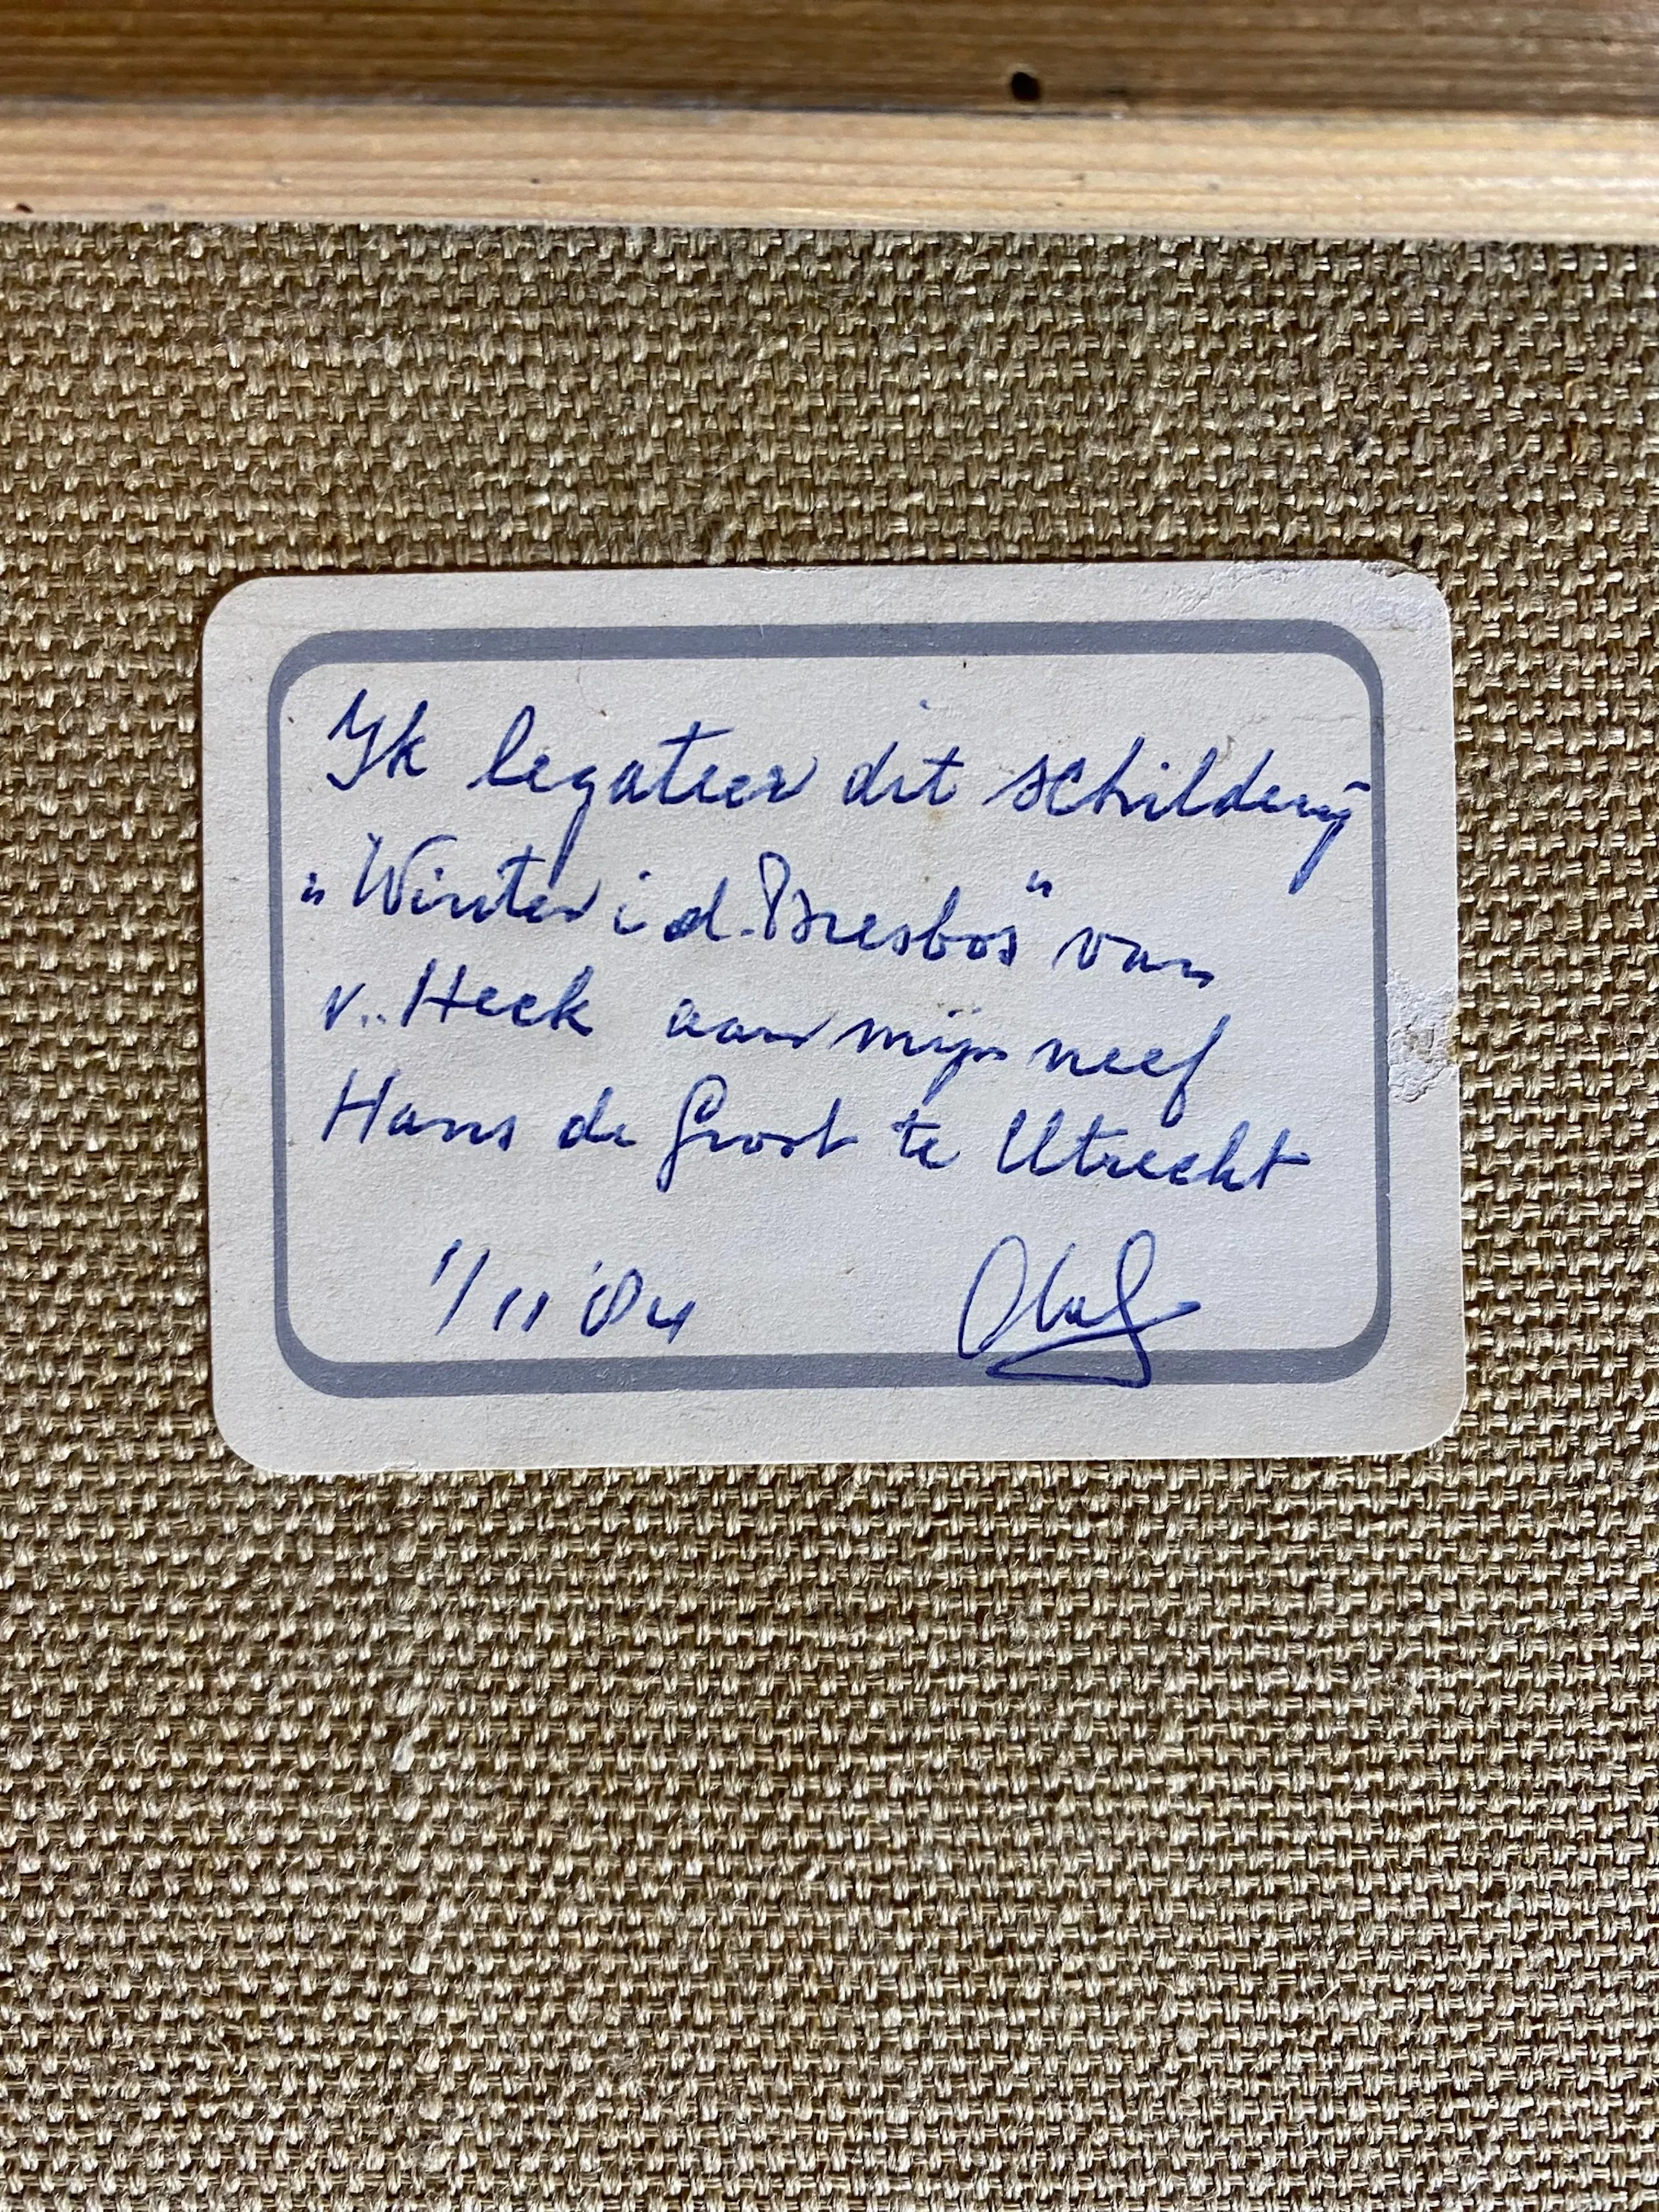 Ik legateer dit schilderij
"Winter i.d. Biesbos" van
v. Heck aan mijn neef
Hans de Groot te Utrecht
1/11 '84 Olaf